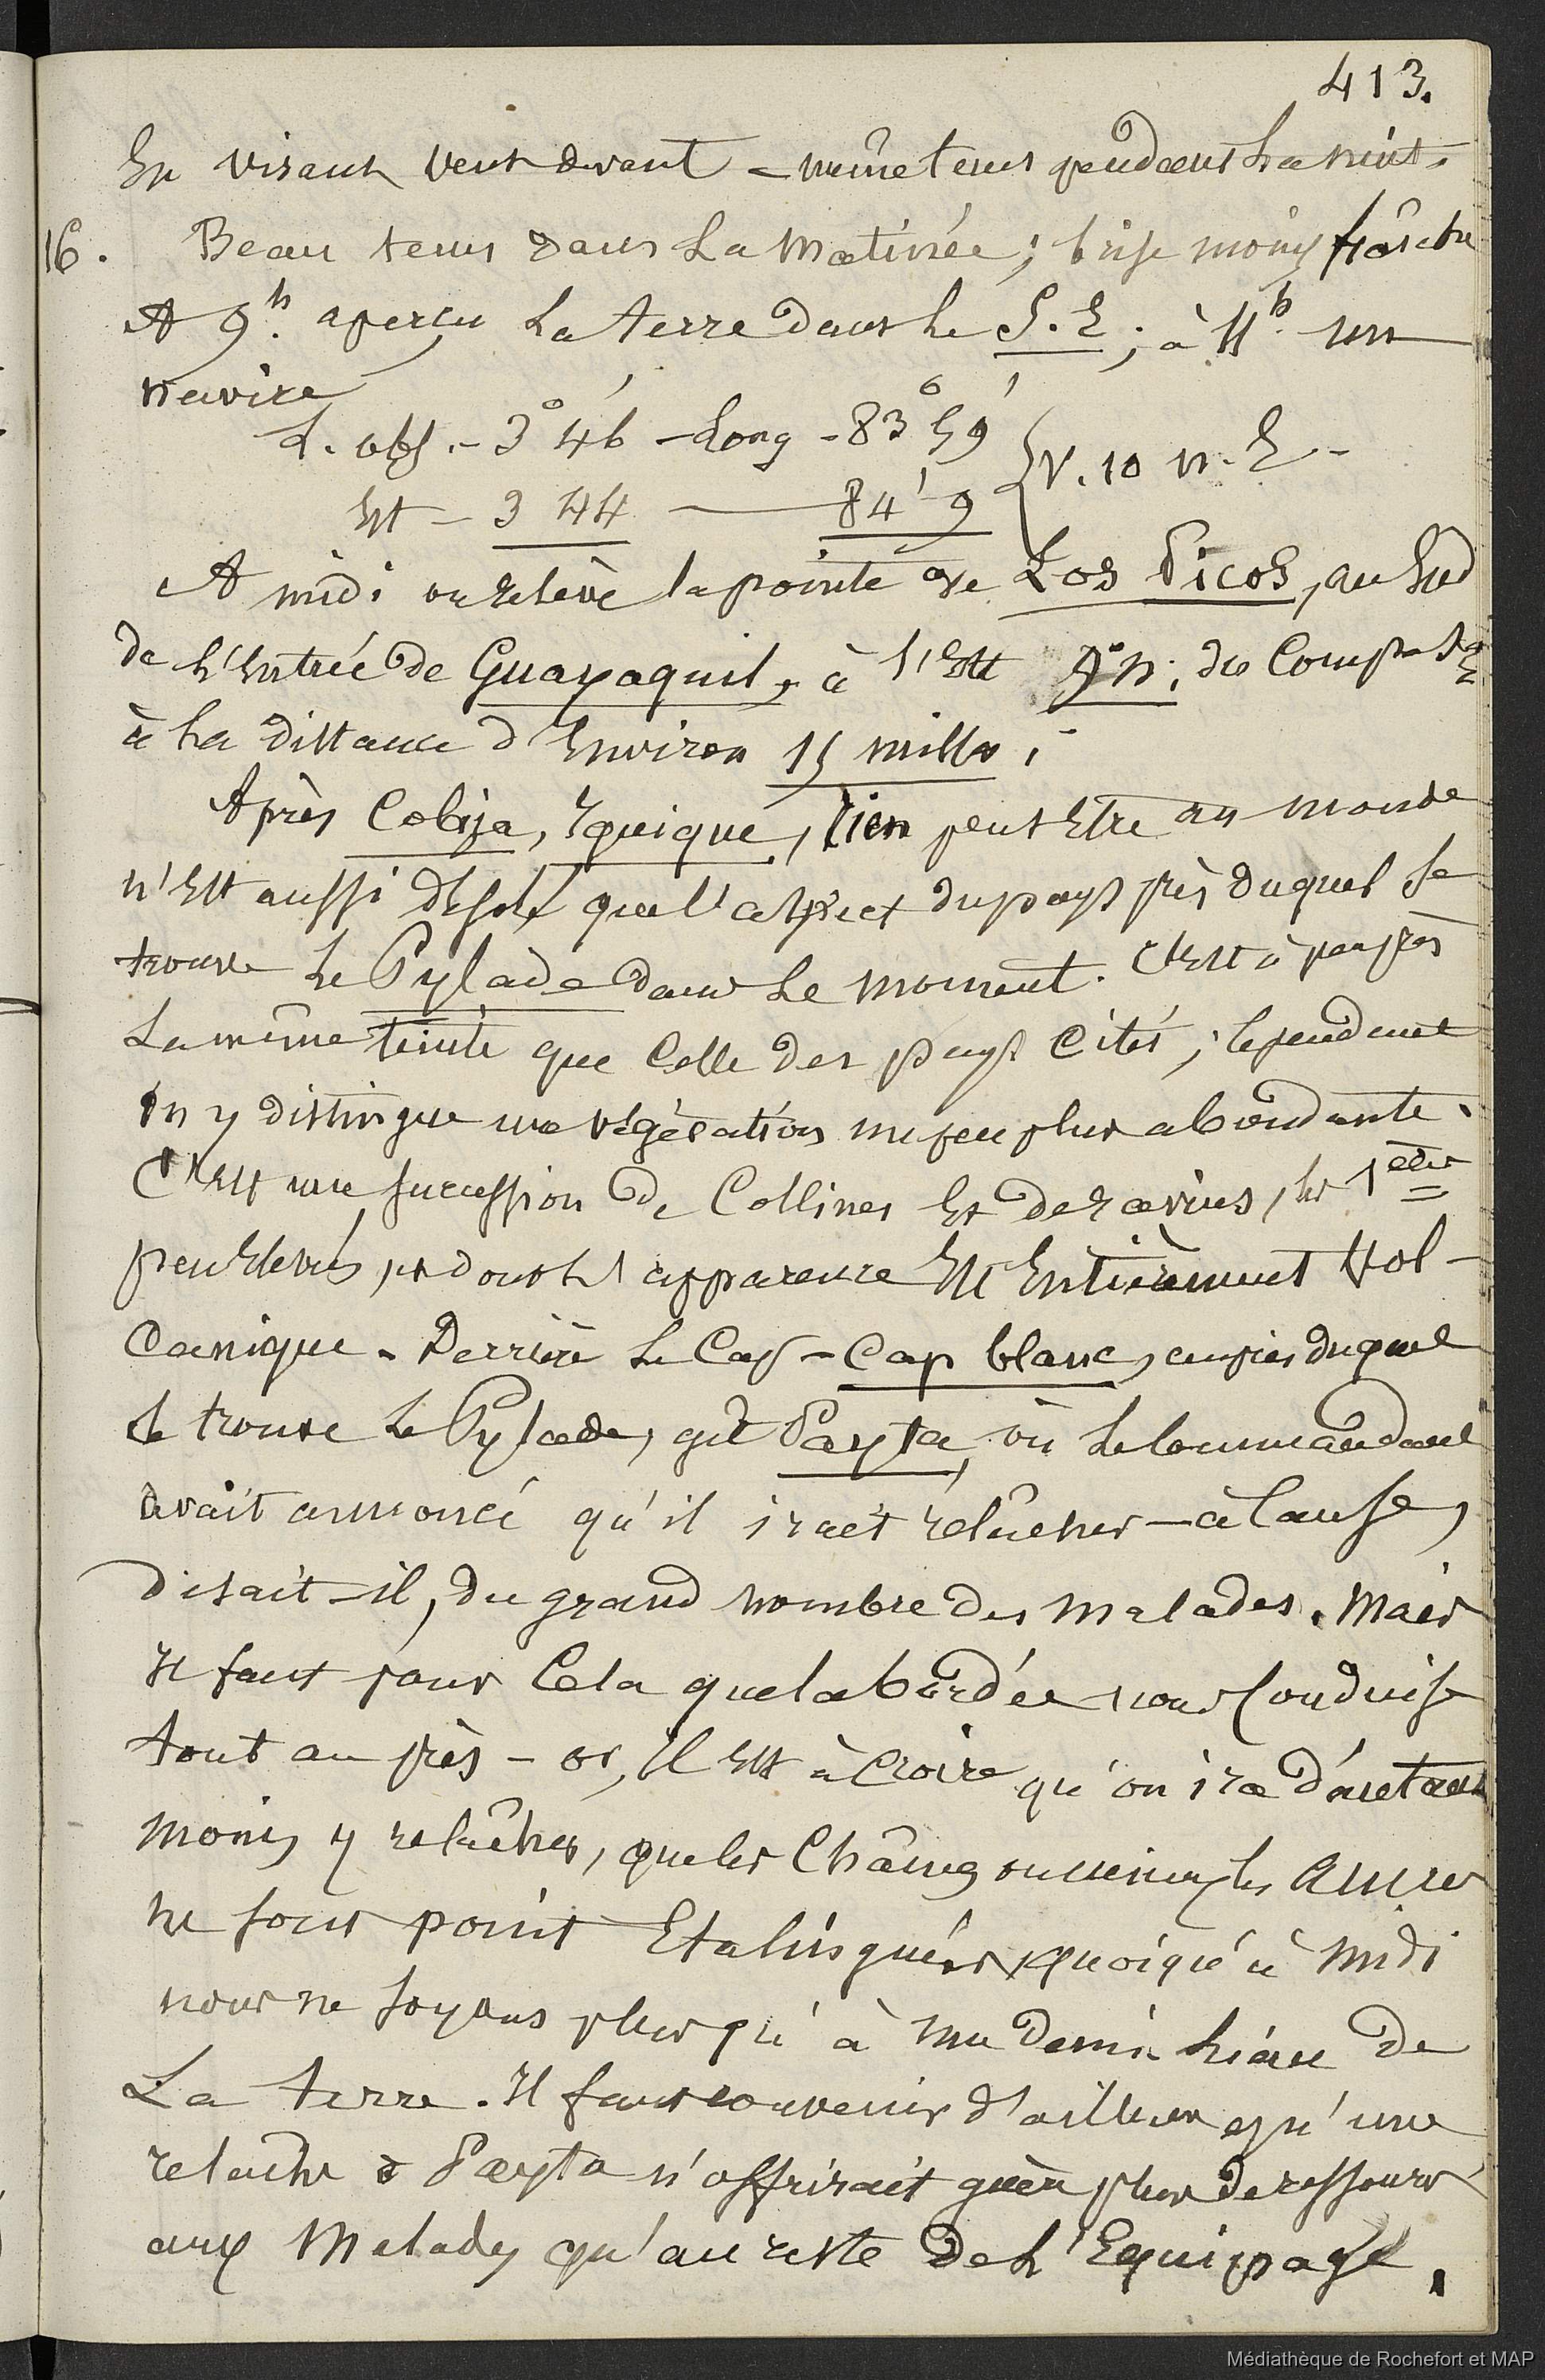 413.
En virant vent devant = même tems pendant la nuit.
16. Beau tems dans la matinée; brise moins fraîche
A 9h. aperçu la terre dans le S. E; à 11h. un
navire
L. obs. - 3° 46 - Long - 83° 59'
Est - 3 44 — 84' 9 { V. 10 N. E -
A midi on relève la pointe de Los Picos, au Sud
de l'Entrée de Guayaquil, à l'Est 9° N. du Compas
à la distance d'Environ 15 milles;
Après Cobija, Iquique, rien peut Etre au monde
n'Est aussi désolé que l'aspect du pays près duquel se
trouve le Pylade dans le moment. C'Est à peu près
la même teinte que Celle des pays Cités; Cependant
on y distingue une végétation un peu plus abondante.
C'Est une succession de Collines Et de ravins, les 1ères
peu Elevées, et dont l'apparence Est Entièrement Vol-
canique. Derrière le Cap - Cap blanc, auprès duquel
se trouve le Pylade, gît Payta, où le Commandant
avait annoncé qu'il irait relâcher - à Cause,
disait-il, du grand nombre des malades. Mais
Il faut pour Cela que la bordée nous Conduise
tout au près - or, Il Est à Croire qu'on ira d'autant
moins y relâcher, que les Chaînes ou les ancres
ne sont point Etalinguées quoiqu'à midi
nous ne soyons plus qu'à une demie lieue de
La terre. Il faut convenir d'ailleurs qu'une
relache à Payta n'offrirait guère plus de ressources
aux Malades qu'au reste de l'Equipage.
Médiathèque de Rochefort et MAP